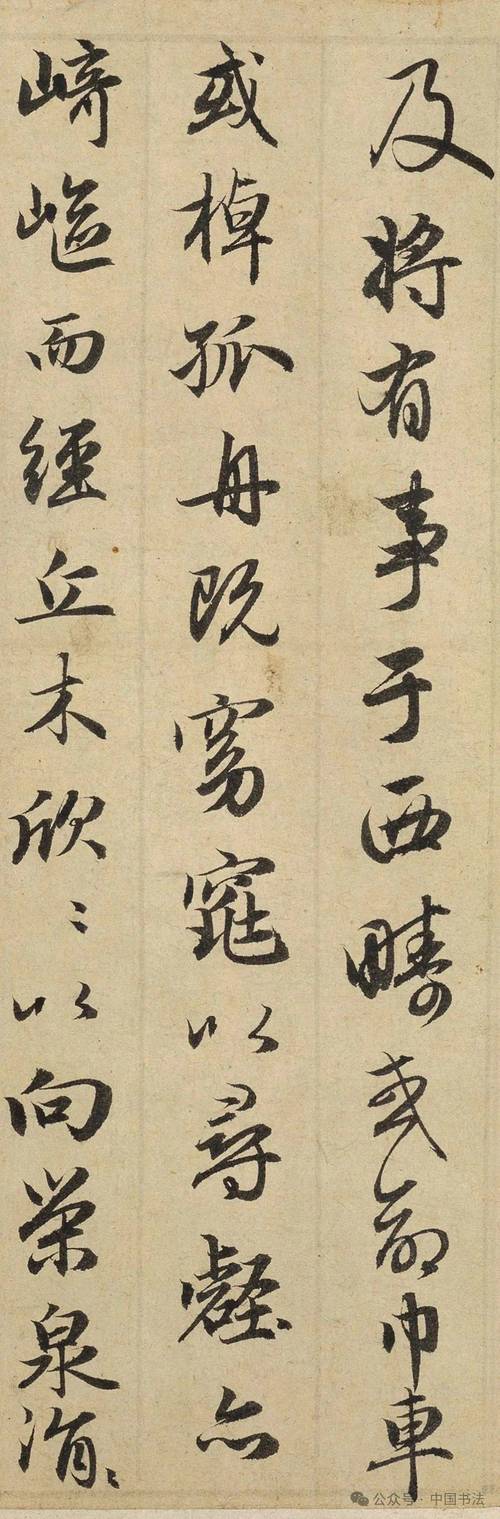 及將有事于西疇或命巾車
或棹孤舟既窈窕以尋壑亦
崎嶇而經丘木欣〻以向榮泉涓〻
公众号 · 中国书法